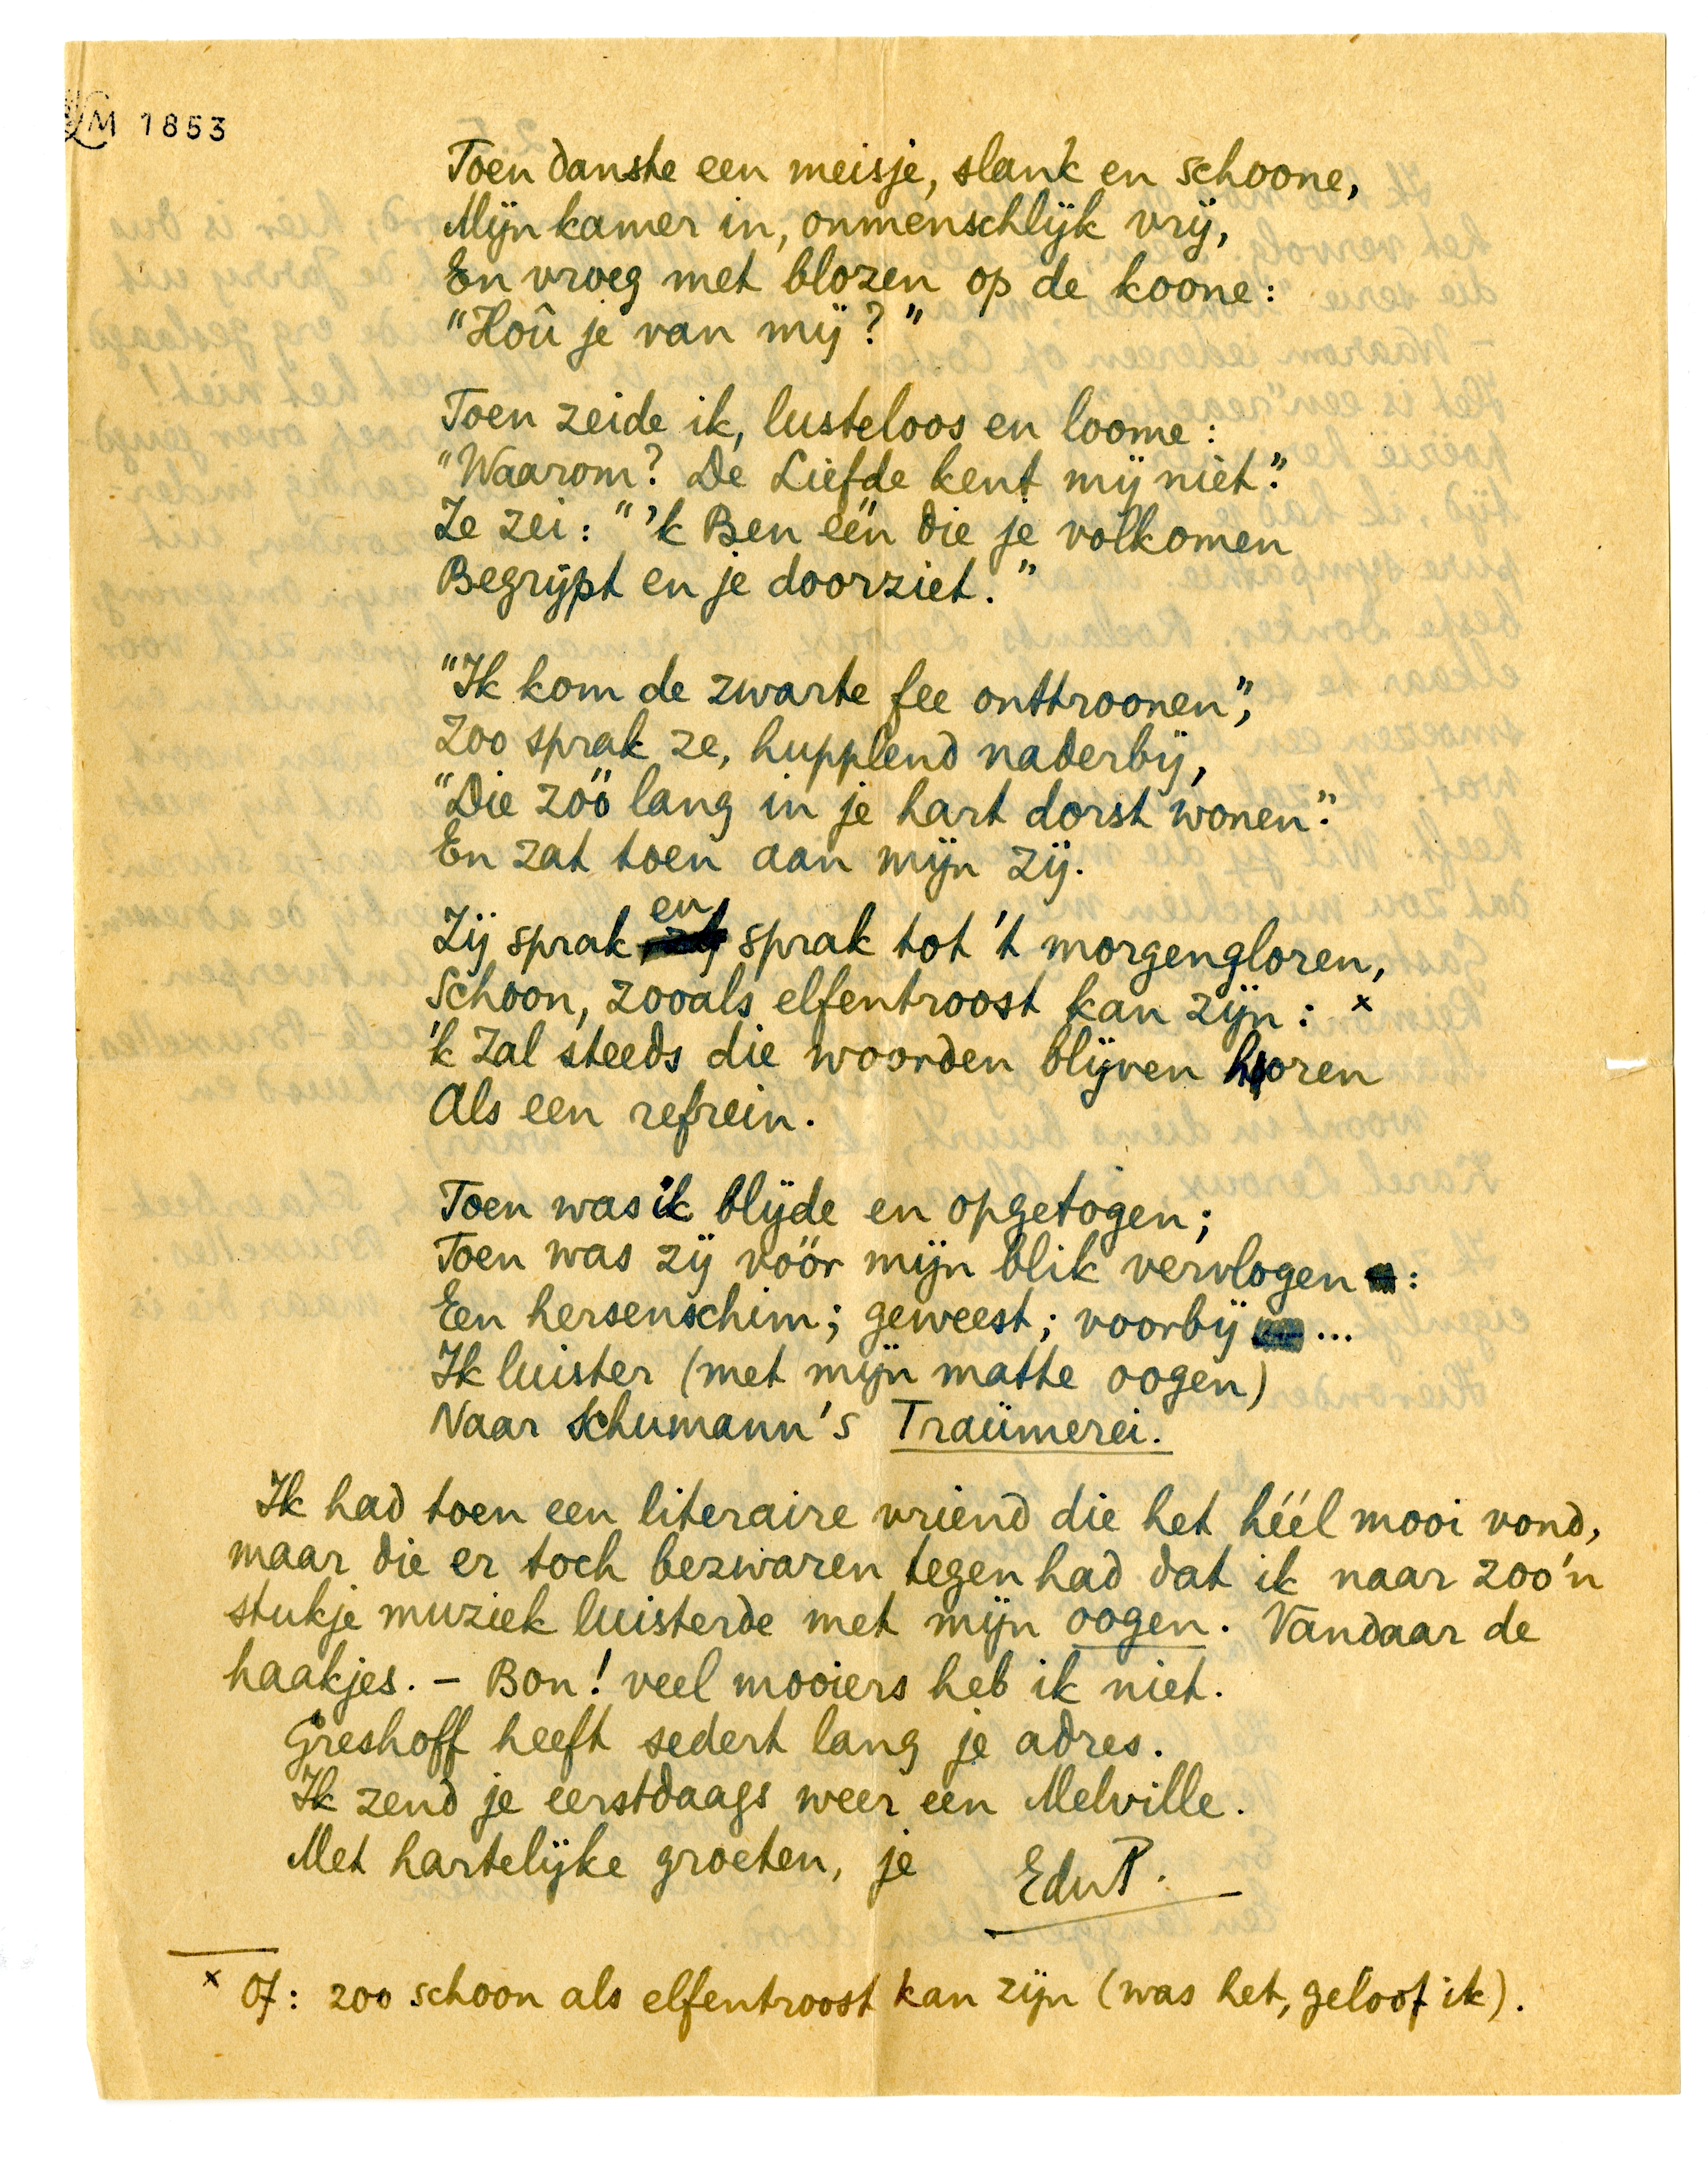 LM 1853
Toen danste een meisje, slank en schoone,
Mijn kamer in, onmenschlijk vrij,
En vroeg met blozen op de koone:
"Hoû je van mij?"
Toen zeide ik, lusteloos en loome:
"Waarom? De Liefde kent mij niet."
Ze zei: "'k Ben één die je volkomen
Begrijpt en je doorziet."
"Ik kom de zwarte fee onttroonen",
Zoo sprak ze, hupplend naderbij,
"Die zóó lang in je hart dorst wonen."
En zat toen aan mijn zij.
Zij sprak en sprak tot 't morgengloren,
Schoon, zooals elfentroost kan zijn: x
'k Zal steeds die woorden blijven hooren
Als een refrein.
Toen was ik blijde en opgetogen;
Toen was zij vóór mijn blik vervlogen:
Een hersenschim; geweest; voorbij ...
Ik luister (met mijn matte oogen)
Naar Schumann's Traümerei.
Ik had toen een literaire vriend die het héél mooi vond,
maar die er toch bezwaren tegen had dat ik naar zoo'n
stukje muziek luisterde met mijn oogen. Vandaar de
haakjes. – Bon! veel mooiers heb ik niet.
Greshoff heeft sedert lang je adres.
Ik zend je eerstdaags weer een Melville.
Met hartelijke groeten, je EduP.
x Of: zoo schoon als elfentroost kan zijn (was het, geloof ik).